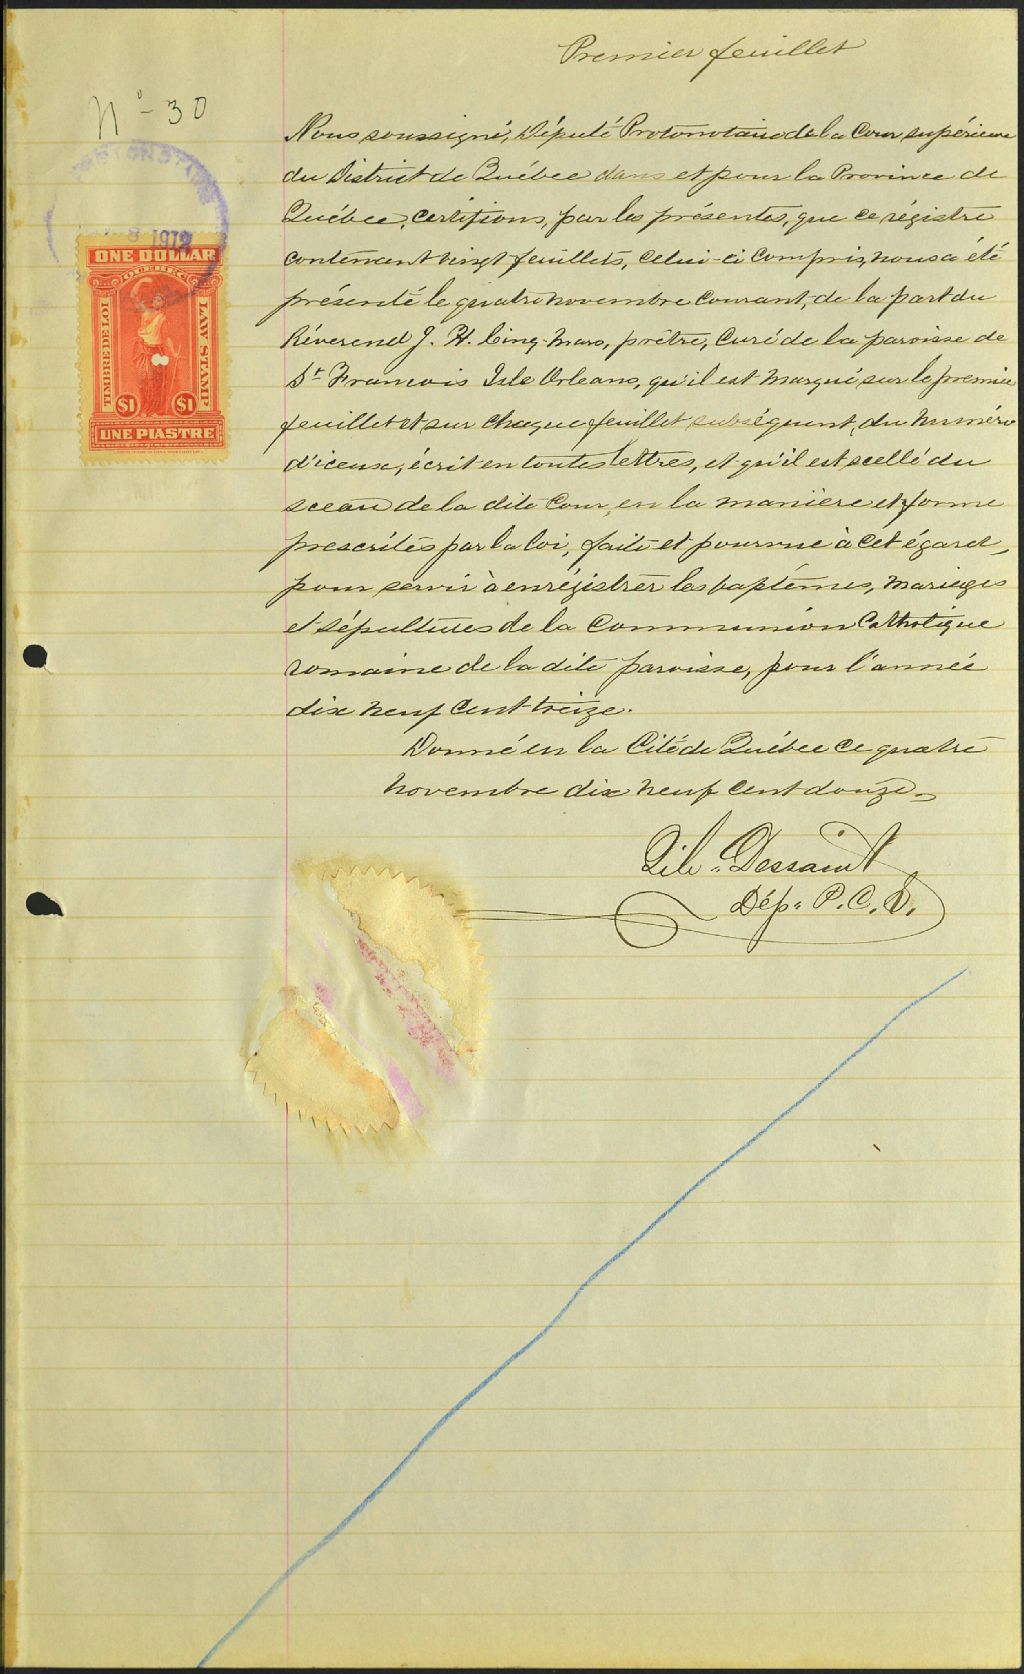 Premier feuillet
N° - 30
Nous soussigné, Député Protonotaire de la Cour supérieure
du District de Québec dans et pour la Province de
Québec, certifions, par les présentes, que ce régistre
contenant vingt feuillets, celui-ci compris, nous a été
présenté le quatre novembre courant, de la part du
Réverend J. H. Cinq-Mars, prêtre, Curé de la paroisse de
St François Isle Orleans, qu'il est marqué sur le premier
feuillet et sur chaque feuillet subséquent, du numéro
d'iceux, écrit en toutes lettres, et qu'il est scellé du
sceau de la dite Cour, en la manière et forme
prescrites par la loi, faite et pourvue à cet égard,
pour servir à enrégistrer les baptêmes, mariages
et sépultures de la Communion Catholique
romaine de la dite paroisse, pour l'année
dix neuf cent treize.
Donné en la Cité de Québec ce quatre
novembre dix neuf cent douze.
Dessaint
Dép. P. C. S.
8 1912
ONE DOLLAR
QUEBEC
TIMBRE DE LOI
LAW STAMP
$1 $1
UNE PIASTRE